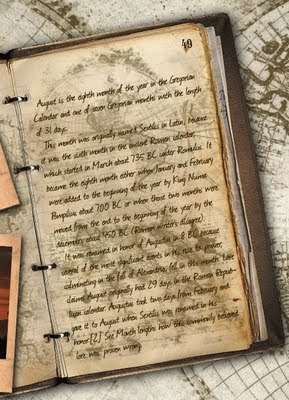 49
August is the eighth month of the year in the Gregorian
Calendar and one of seven Gregorian months with the length
of 31 days.
This month was originally named Sextilis in Latin, because
it was the sixth month in the ancient Roman calendar,
which started in March about 735 BC under Romulus. It
became the eighth month either when January and February
were added to the beginning of the year by King Numa
Pompilius about 700 BC or when those two months were
moved from the end to the beginning of the year by the
decemvirs about 450 BC (Roman writers disagree).
It was renamed in honor of Augustus in 8 BC because
several of the most significant events in his rise to power,
culminating in the fall of Alexandria, fell in this month. Lore
claims August originally had 29 days in the Roman Repub-
lican calendar. Augustus took two days from February and
gave it to August when Sextilis was renamed in his
honor[2] See Month lengths how this commonly believed
lore was proven wrong.